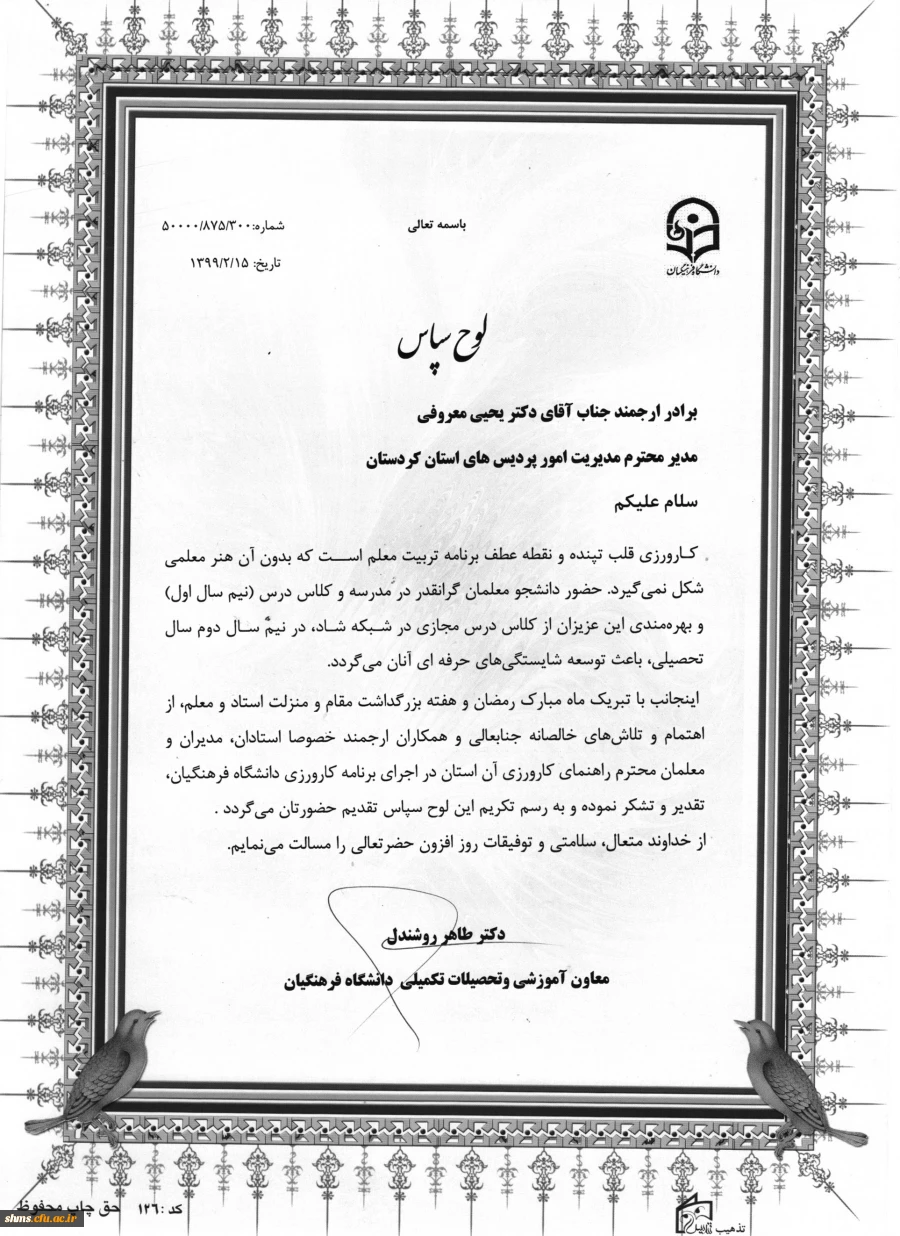 باسمه تعالی
شماره: ۵۰۰۰۰/۸۷۵/۳۰۰
تاریخ: ۱۳۹۹/۲/۱۵
دانشگاه فرهنگیان
لوح سپاس
برادر ارجمند جناب آقای دکتر یحیی معروفی
مدیر محترم مدیریت امور پردیس های استان کردستان
سلام علیکم
کارورزی قلب تپنده و نقطه عطف برنامه تربیت معلم است که بدون آن هنر معلمی
شکل نمی‌گیرد. حضور دانشجو معلمان گرانقدر در مدرسه و کلاس درس (نیم سال اول)
و بهره‌مندی این عزیزان از کلاس درس مجازی در شبکه شاد، در نیم سال دوم سال
تحصیلی، باعث توسعه شایستگی‌های حرفه ای آنان می‌گردد.
اینجانب با تبریک ماه مبارک رمضان و هفته بزرگداشت مقام و منزلت استاد و معلم، از
اهتمام و تلاش‌های خالصانه جنابعالی و همکاران ارجمند خصوصا استادان، مدیران و
معلمان محترم راهنمای کارورزی آن استان در اجرای برنامه کارورزی دانشگاه فرهنگیان،
تقدیر و تشکر نموده و به رسم تکریم این لوح سپاس تقدیم حضورتان می‌گردد .
از خداوند متعال، سلامتی و توفیقات روز افزون حضرتعالی را مسالت می‌نمایم.
دکتر طاهر روشندل
معاون آموزشی وتحصیلات تکمیلی دانشگاه فرهنگیان
تذهیب
کد : ۱۲۶ حق چاپ محفوظ
shms.cfu.ac.ir